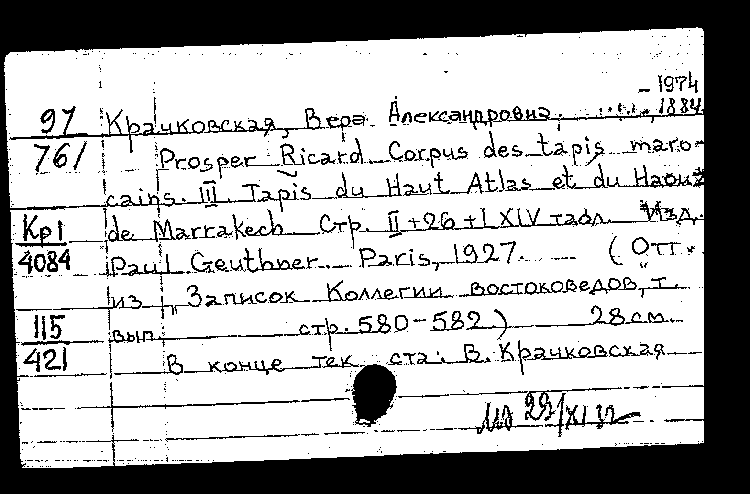 – 1974
97 Крачковская, Вера Александровна, 1884
761 Prosper Ricard Corpus des tapis maro-
cains. III. Tapis du Haut Atlas et du Haouz
Кр1 de Marrakech Стр. II+26+LXIV табл. Изд.
4084 Paul Geuthner Paris, 1927. (Отт.
из „Записок Коллегии востоковедов", т.
115 вып. стр. 580-582) 28 см.
421 В конце тек ста: В. Крачковская
29/XI 32